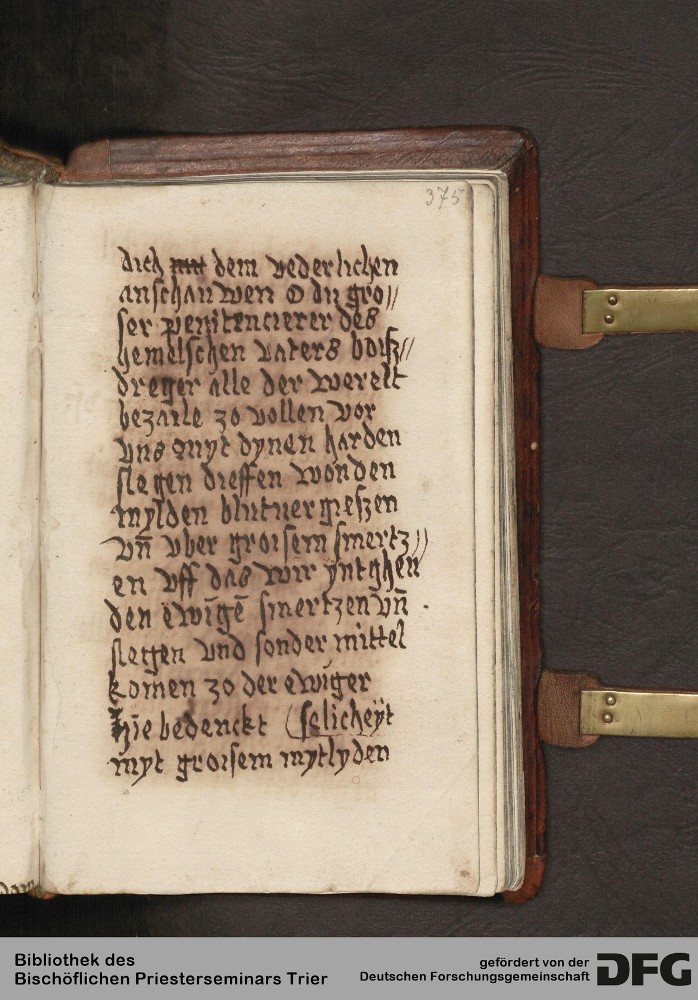 375
dich mit dem vederlichen
anschauwen O du gro//
ser penitencierer des
hemelschen vaters borsz//
dreger alle der werelt
bezaile zo vollen vor
vns myt dynen harden
slegen dieffen wonden
mylden blutuergieszen
vn̄ vber groisem smertz//
en vff das wir yntghen
den ewigē smertzen vn̄
slegen vnd sonder mittel
komen zo der ewiger
Hie bedenckt (selicheyt
myt groisem mytlyden
Bibliothek des
Bischöflichen Priesterseminars Trier
gefördert von der
Deutschen Forschungsgemeinschaft
DFG